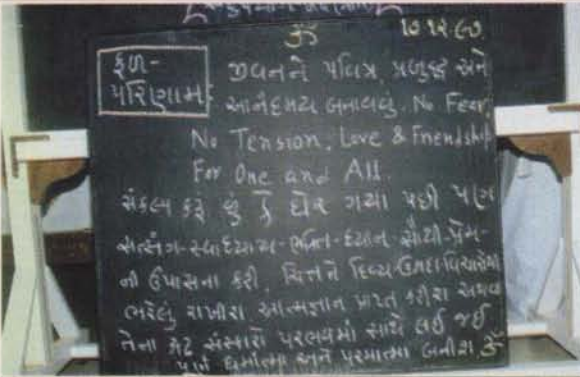 ૐ ૧૭.૧૨.૯૭.
ફળ-
પરિણામ:
જીવનને પવિત્ર, પ્રબુદ્ધ અને
આનંદમય બનાવવું. No Fear,
No Tension, Love & Friendship
For One and All.
સંકલ્પ કરૂં છું કે ઘેર ગયા પછી પણ
સત્સંગ-સ્વાધ્યાય-ભક્તિ-ધ્યાન-મૈત્રી-પ્રેમ-
ની ઉપાસના કરી, ચિત્તને દિવ્ય ઉમદા વિચારોથી
ભરેલું રાખીશ. આત્મજ્ઞાન પ્રાપ્ત કરીશ અથવા
તેના દ્રઢ સંસ્કારો પરભવમાં સાથે લઈ જઈ
પૂર્ણ ધર્માત્મા અને પરમાત્મા બનીશ. ૐ